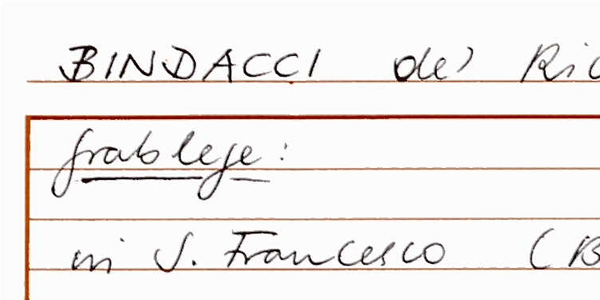 BINDACCI de' Ric
grablege:
in S. Francesco (B